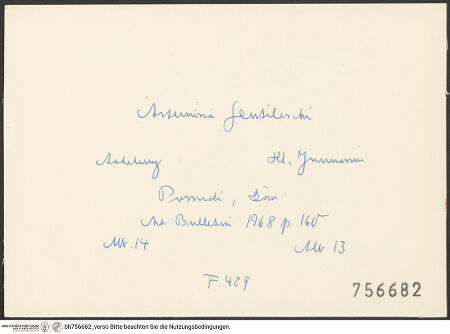 Artemisia Gentileschi
Anbetung Hl. Januarius
Pozzuoli, Dom
Art Bulletin 1968 p. 165
Abb. 14 Abb. 13
F 429
756682
bh756682_verso Bitte beachten Sie die Nutzungsbedingungen.